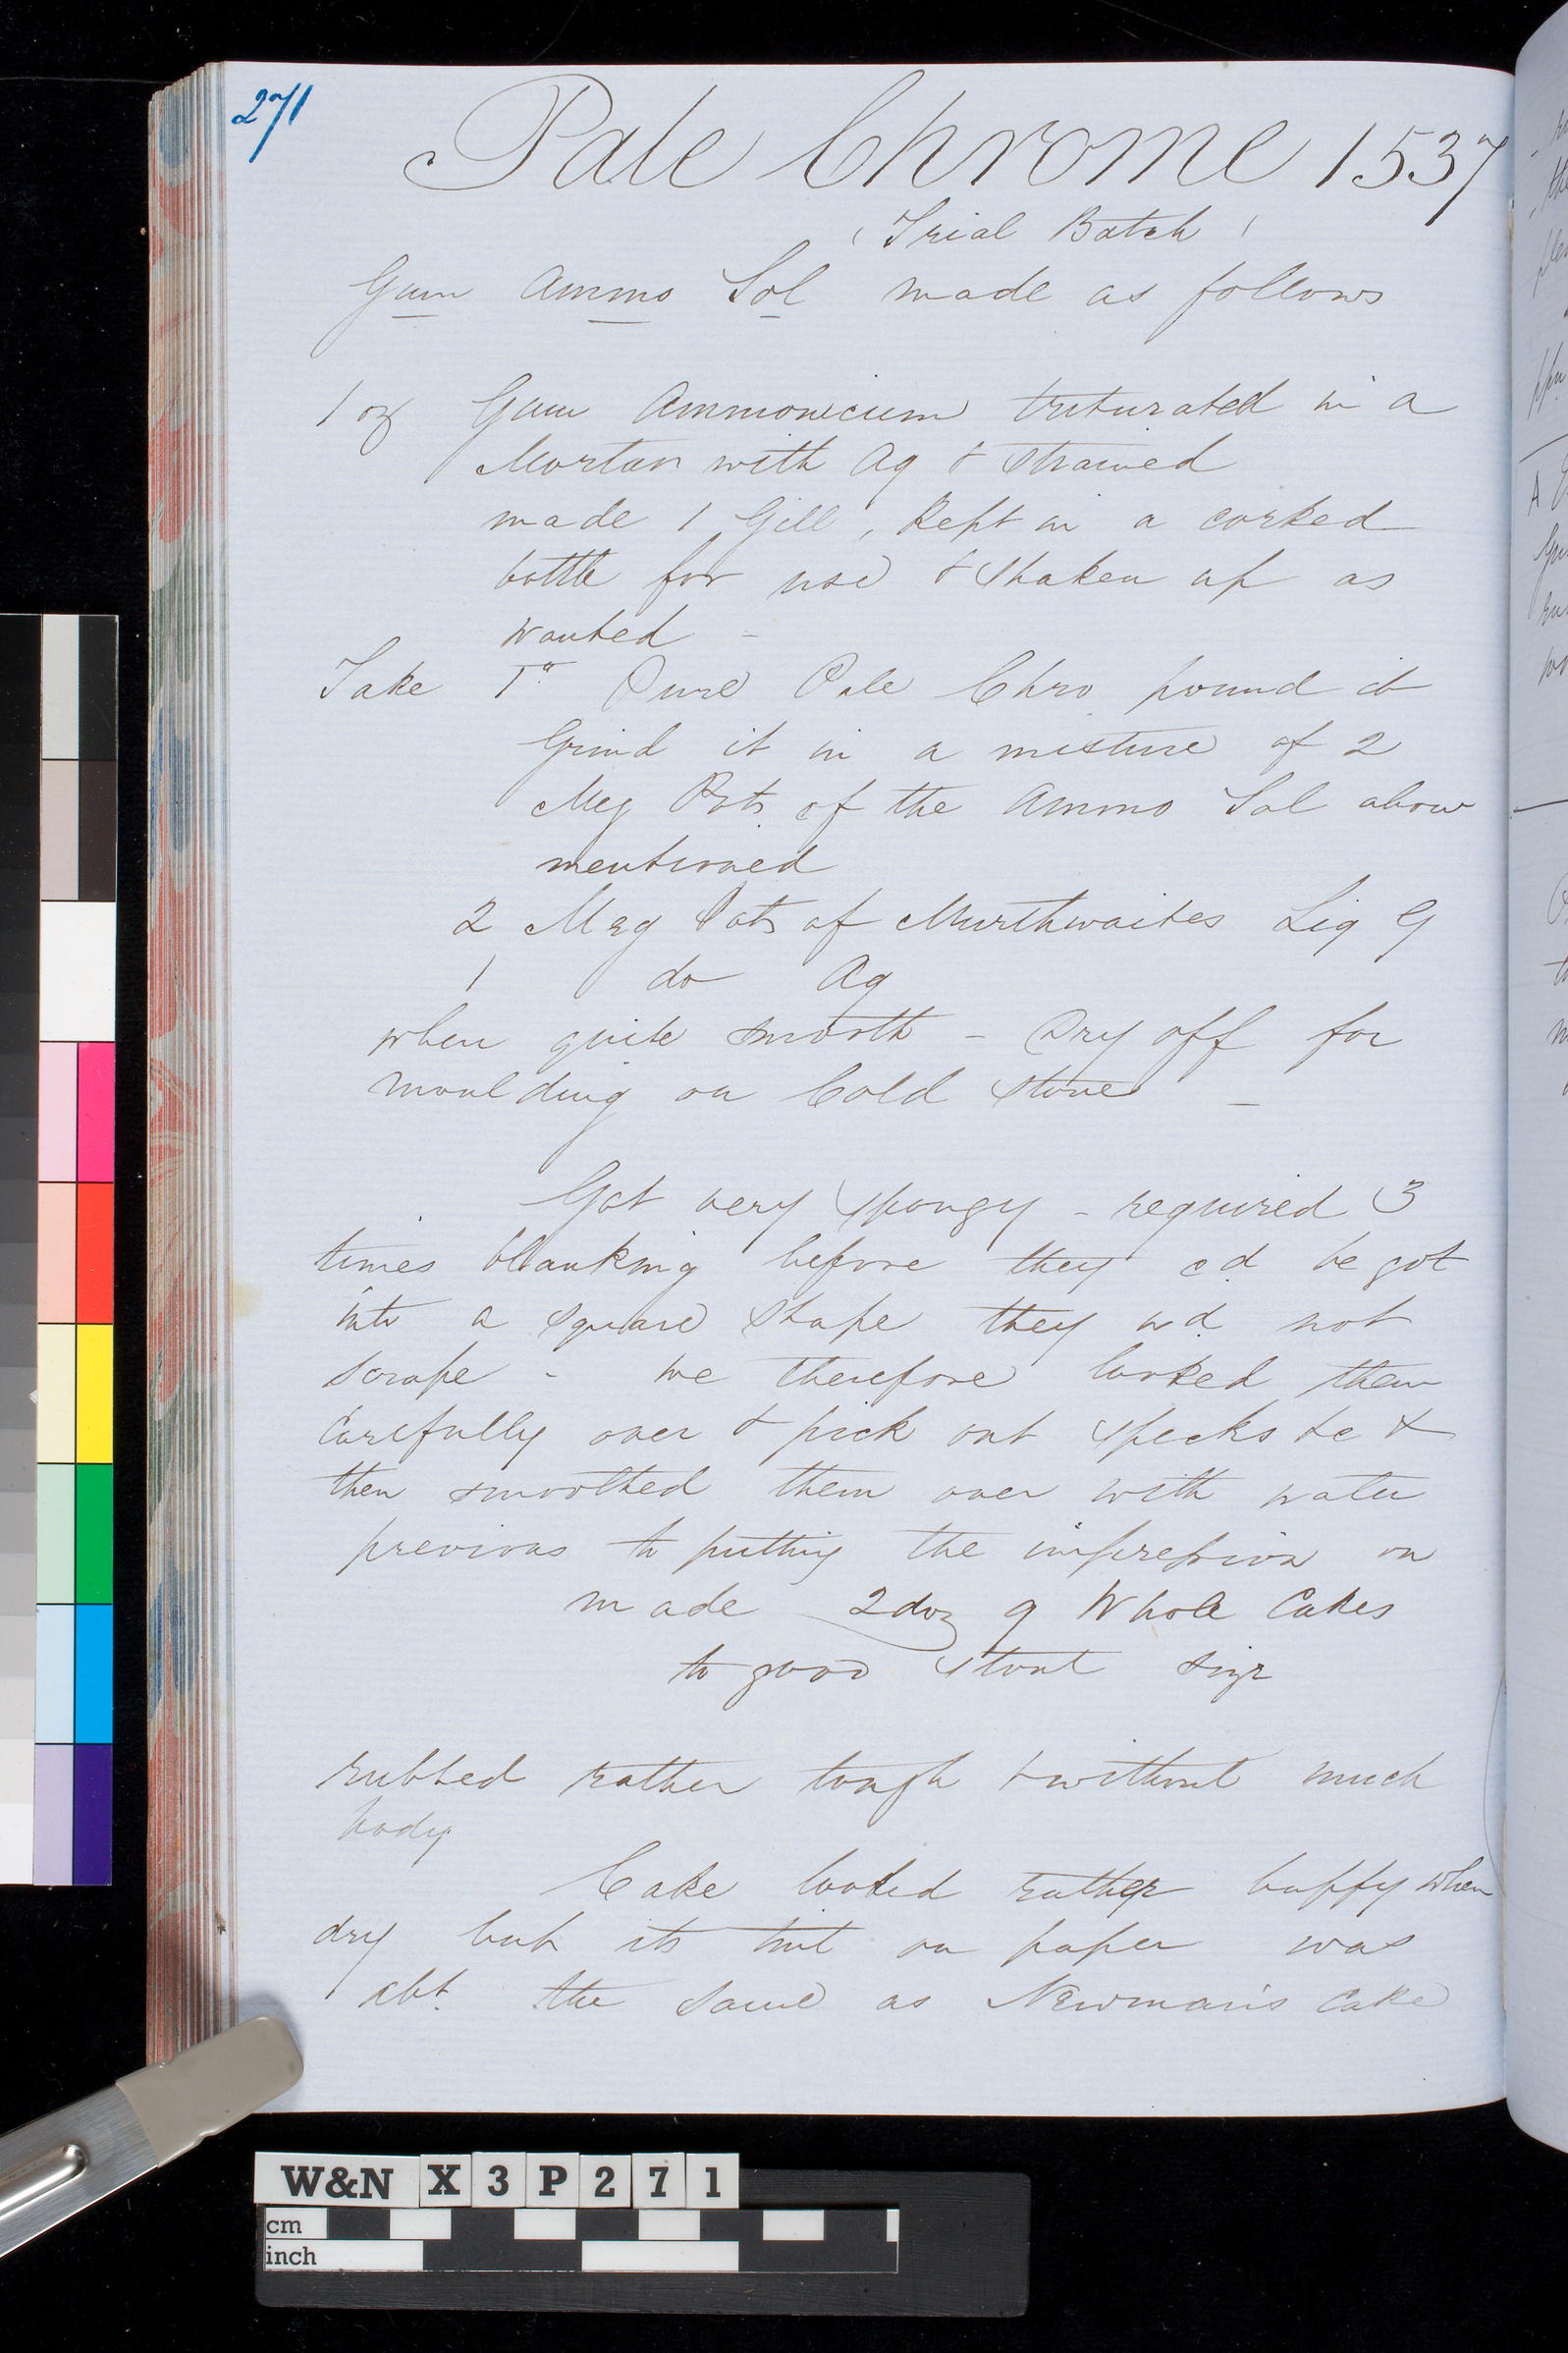 271
Pale Chrome 1537
(Trial Batch)
Gum Ammo Sol made as follows
1 oz Gum Ammonicum triturated in a
Mortar with Aq & strained
made 1 Gill, kept in a corked
bottle for use & shaken up as
wanted -
Take 1" Pure Pale Chro pound it
Grind it in a mixture of 2
Meg Pots of the Ammo Sol above
mentioned
2 Meg Pots of Murthwaites Liq G
1 do Aq
when quite smooth - Dry off for
moulding on Cold stone -
Got very spongy - required 3
times blanking before they cd be got
into a square shape they wd not
scrape - we therefore looked them
Carefully over & pick out specks &c &
then smoothed them over with water
previous to putting the impression on
made 2 doz 9 Whole Cakes
to good stout size
rubbed rather tough & without much
body
Cake looked rather buffy when
dry but its tint on paper was
abt. the same as Newman's Cake
W&N X3P271
cm
inch